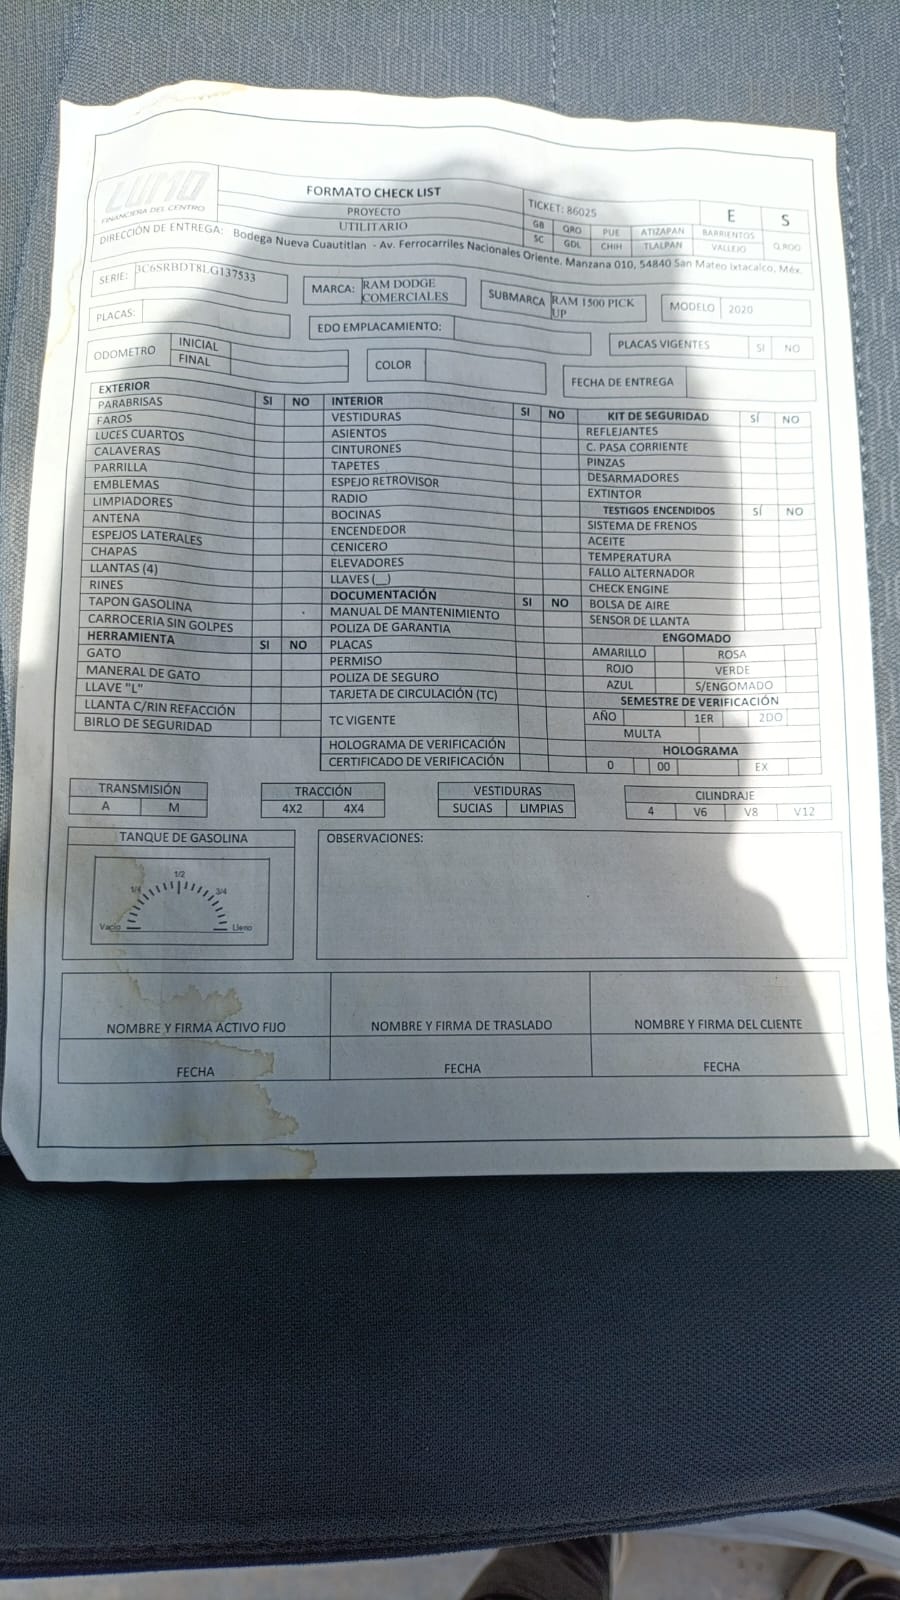 LUMO
FINANCIERA DEL CENTRO
FORMATO CHECK LIST
PROYECTO
UTILITARIO
TICKET: 86025
E S
GB QRO PUE ATIZAPAN BARRIENTOS
SC GDL CHIH TLALPAN VALLEJO Q.ROO
DIRECCIÓN DE ENTREGA: Bodega Nueva Cuautitlan - Av. Ferrocarriles Nacionales Oriente. Manzana 010, 54840 San Mateo Ixtacalco, Méx.
SERIE: 3C6SRBDT8LG137533
MARCA: RAM DODGE COMERCIALES
SUBMARCA RAM 1500 PICK UP
MODELO 2020
PLACAS:
EDO EMPLACAMIENTO:
PLACAS VIGENTES SI NO
ODOMETRO INICIAL
FINAL
COLOR
FECHA DE ENTREGA
EXTERIOR SI NO
PARABRISAS
FAROS
LUCES CUARTOS
CALAVERAS
PARRILLA
EMBLEMAS
LIMPIADORES
ANTENA
ESPEJOS LATERALES
CHAPAS
LLANTAS (4)
RINES
TAPON GASOLINA
CARROCERIA SIN GOLPES
HERRAMIENTA SI NO
GATO
MANERAL DE GATO
LLAVE "L"
LLANTA C/RIN REFACCIÓN
BIRLO DE SEGURIDAD
INTERIOR SI NO
VESTIDURAS
ASIENTOS
CINTURONES
TAPETES
ESPEJO RETROVISOR
RADIO
BOCINAS
ENCENDEDOR
CENICERO
ELEVADORES
LLAVES (__)
DOCUMENTACIÓN SI NO
MANUAL DE MANTENIMIENTO
POLIZA DE GARANTIA
PLACAS
PERMISO
POLIZA DE SEGURO
TARJETA DE CIRCULACIÓN (TC)
TC VIGENTE
HOLOGRAMA DE VERIFICACIÓN
CERTIFICADO DE VERIFICACIÓN
KIT DE SEGURIDAD SÍ NO
REFLEJANTES
C. PASA CORRIENTE
PINZAS
DESARMADORES
EXTINTOR
TESTIGOS ENCENDIDOS SÍ NO
SISTEMA DE FRENOS
ACEITE
TEMPERATURA
FALLO ALTERNADOR
CHECK ENGINE
BOLSA DE AIRE
SENSOR DE LLANTA
ENGOMADO
AMARILLO ROSA
ROJO VERDE
AZUL S/ENGOMADO
SEMESTRE DE VERIFICACIÓN
AÑO 1ER 2DO
MULTA
HOLOGRAMA
0 00 EX
TRANSMISIÓN
A M
TRACCIÓN
4X2 4X4
VESTIDURAS
SUCIAS LIMPIAS
CILINDRAJE
4 V6 V8 V12
TANQUE DE GASOLINA
1/2
1/4 3/4
Vacio Lleno
OBSERVACIONES:
NOMBRE Y FIRMA ACTIVO FIJO
NOMBRE Y FIRMA DE TRASLADO
NOMBRE Y FIRMA DEL CLIENTE
FECHA
FECHA
FECHA